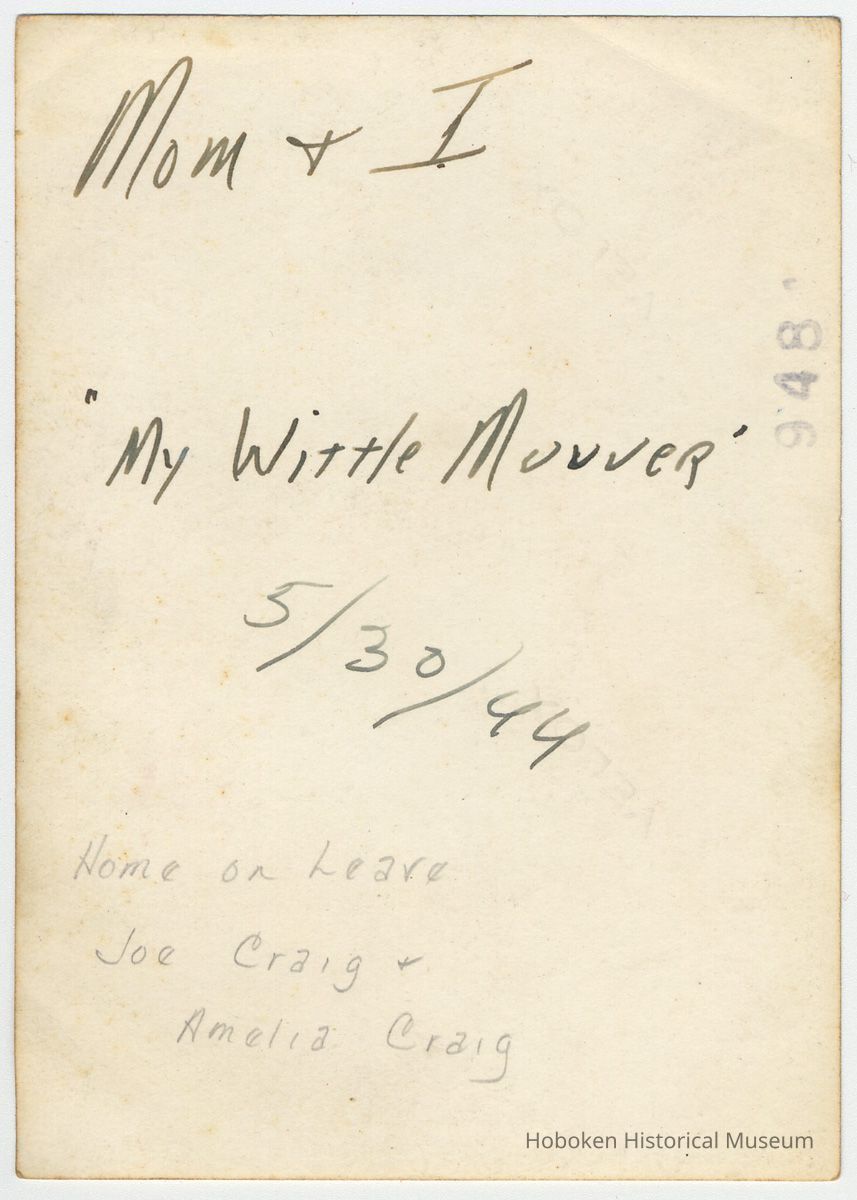 Mom + I
"My Wittle Muvver"
5/30/44
Home on Leave
Joe Craig +
Amelia Craig
948
Hoboken Historical Museum